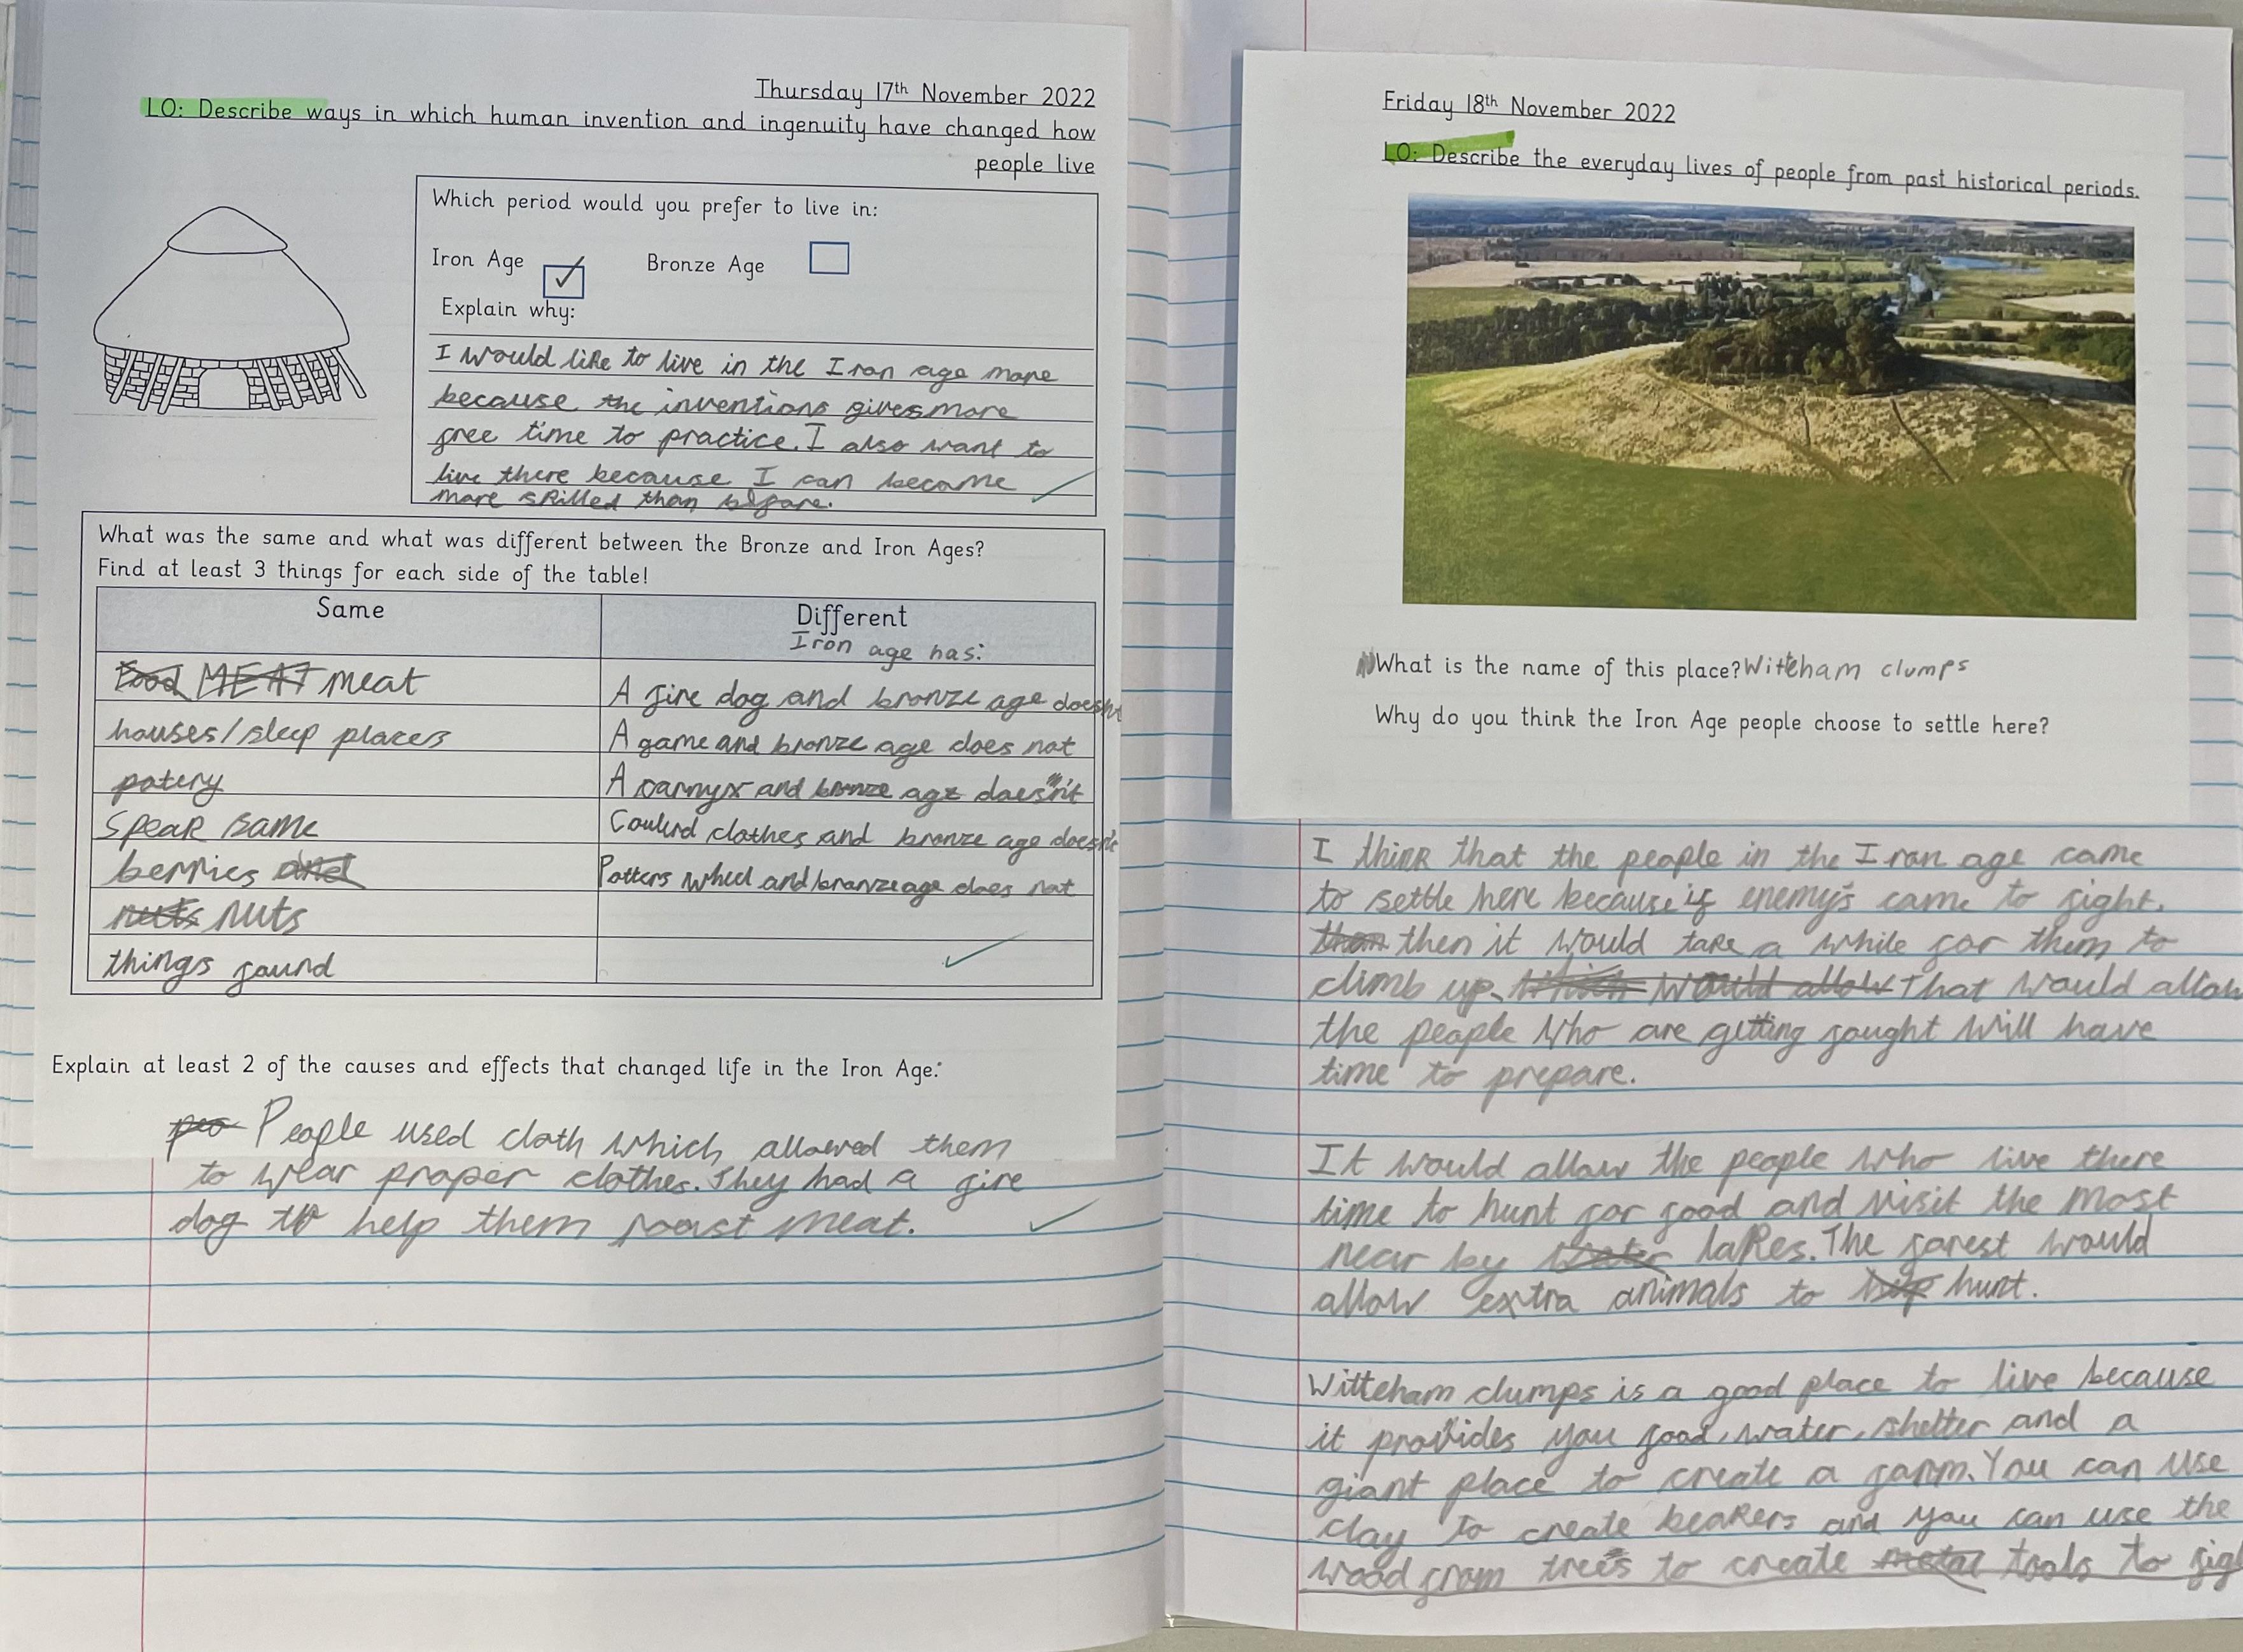 Thursday 17th November 2022
LO: Describe ways in which human invention and ingenuity have changed how
people live
Which period would you prefer to live in:
Iron Age ✓ Bronze Age
Explain why:
I would like to live in the Iron age more
because the inventions gives more
free time to practice. I also want to
live there because I can become
more skilled than before.
What was the same and what was different between the Bronze and Iron Ages?
Find at least 3 things for each side of the table!
Same
Different
Iron age has:
Food MEAT meat
A fire dog and bronze age doesn't
houses/sleep places
A game and bronze age does not
potery
A carnyx and bronze age doesn't
Spear same
Coulerd clothes and bronze age doesn't
berries and
Potters wheel and bronze age does not
nuts nuts
things found
Explain at least 2 of the causes and effects that changed life in the Iron Age:
peo People used cloth which allowed them
to wear proper clothes. They had a fire
dog to help them roast meat.
Friday 18th November 2022
LO: Describe the everyday lives of people from past historical periods.
What is the name of this place? Witteham clumps
Why do you think the Iron Age people choose to settle here?
I think that the people in the Iron age came
to settle here because if enemy's came to fight,
than then it would take a while for them to
climb up. Which would allow That would allow
the people who are getting fought will have
time to prepare.
It would allow the people who live there
time to hunt for food and visit the most
near by water lakes. The forest would
allow extra animals to hunt.
Witteham clumps is a good place to live because
it provides you food, water, shelter and a
giant place to create a farm. You can use
clay to create beakers and you can use the
wood from trees to create metal tools to